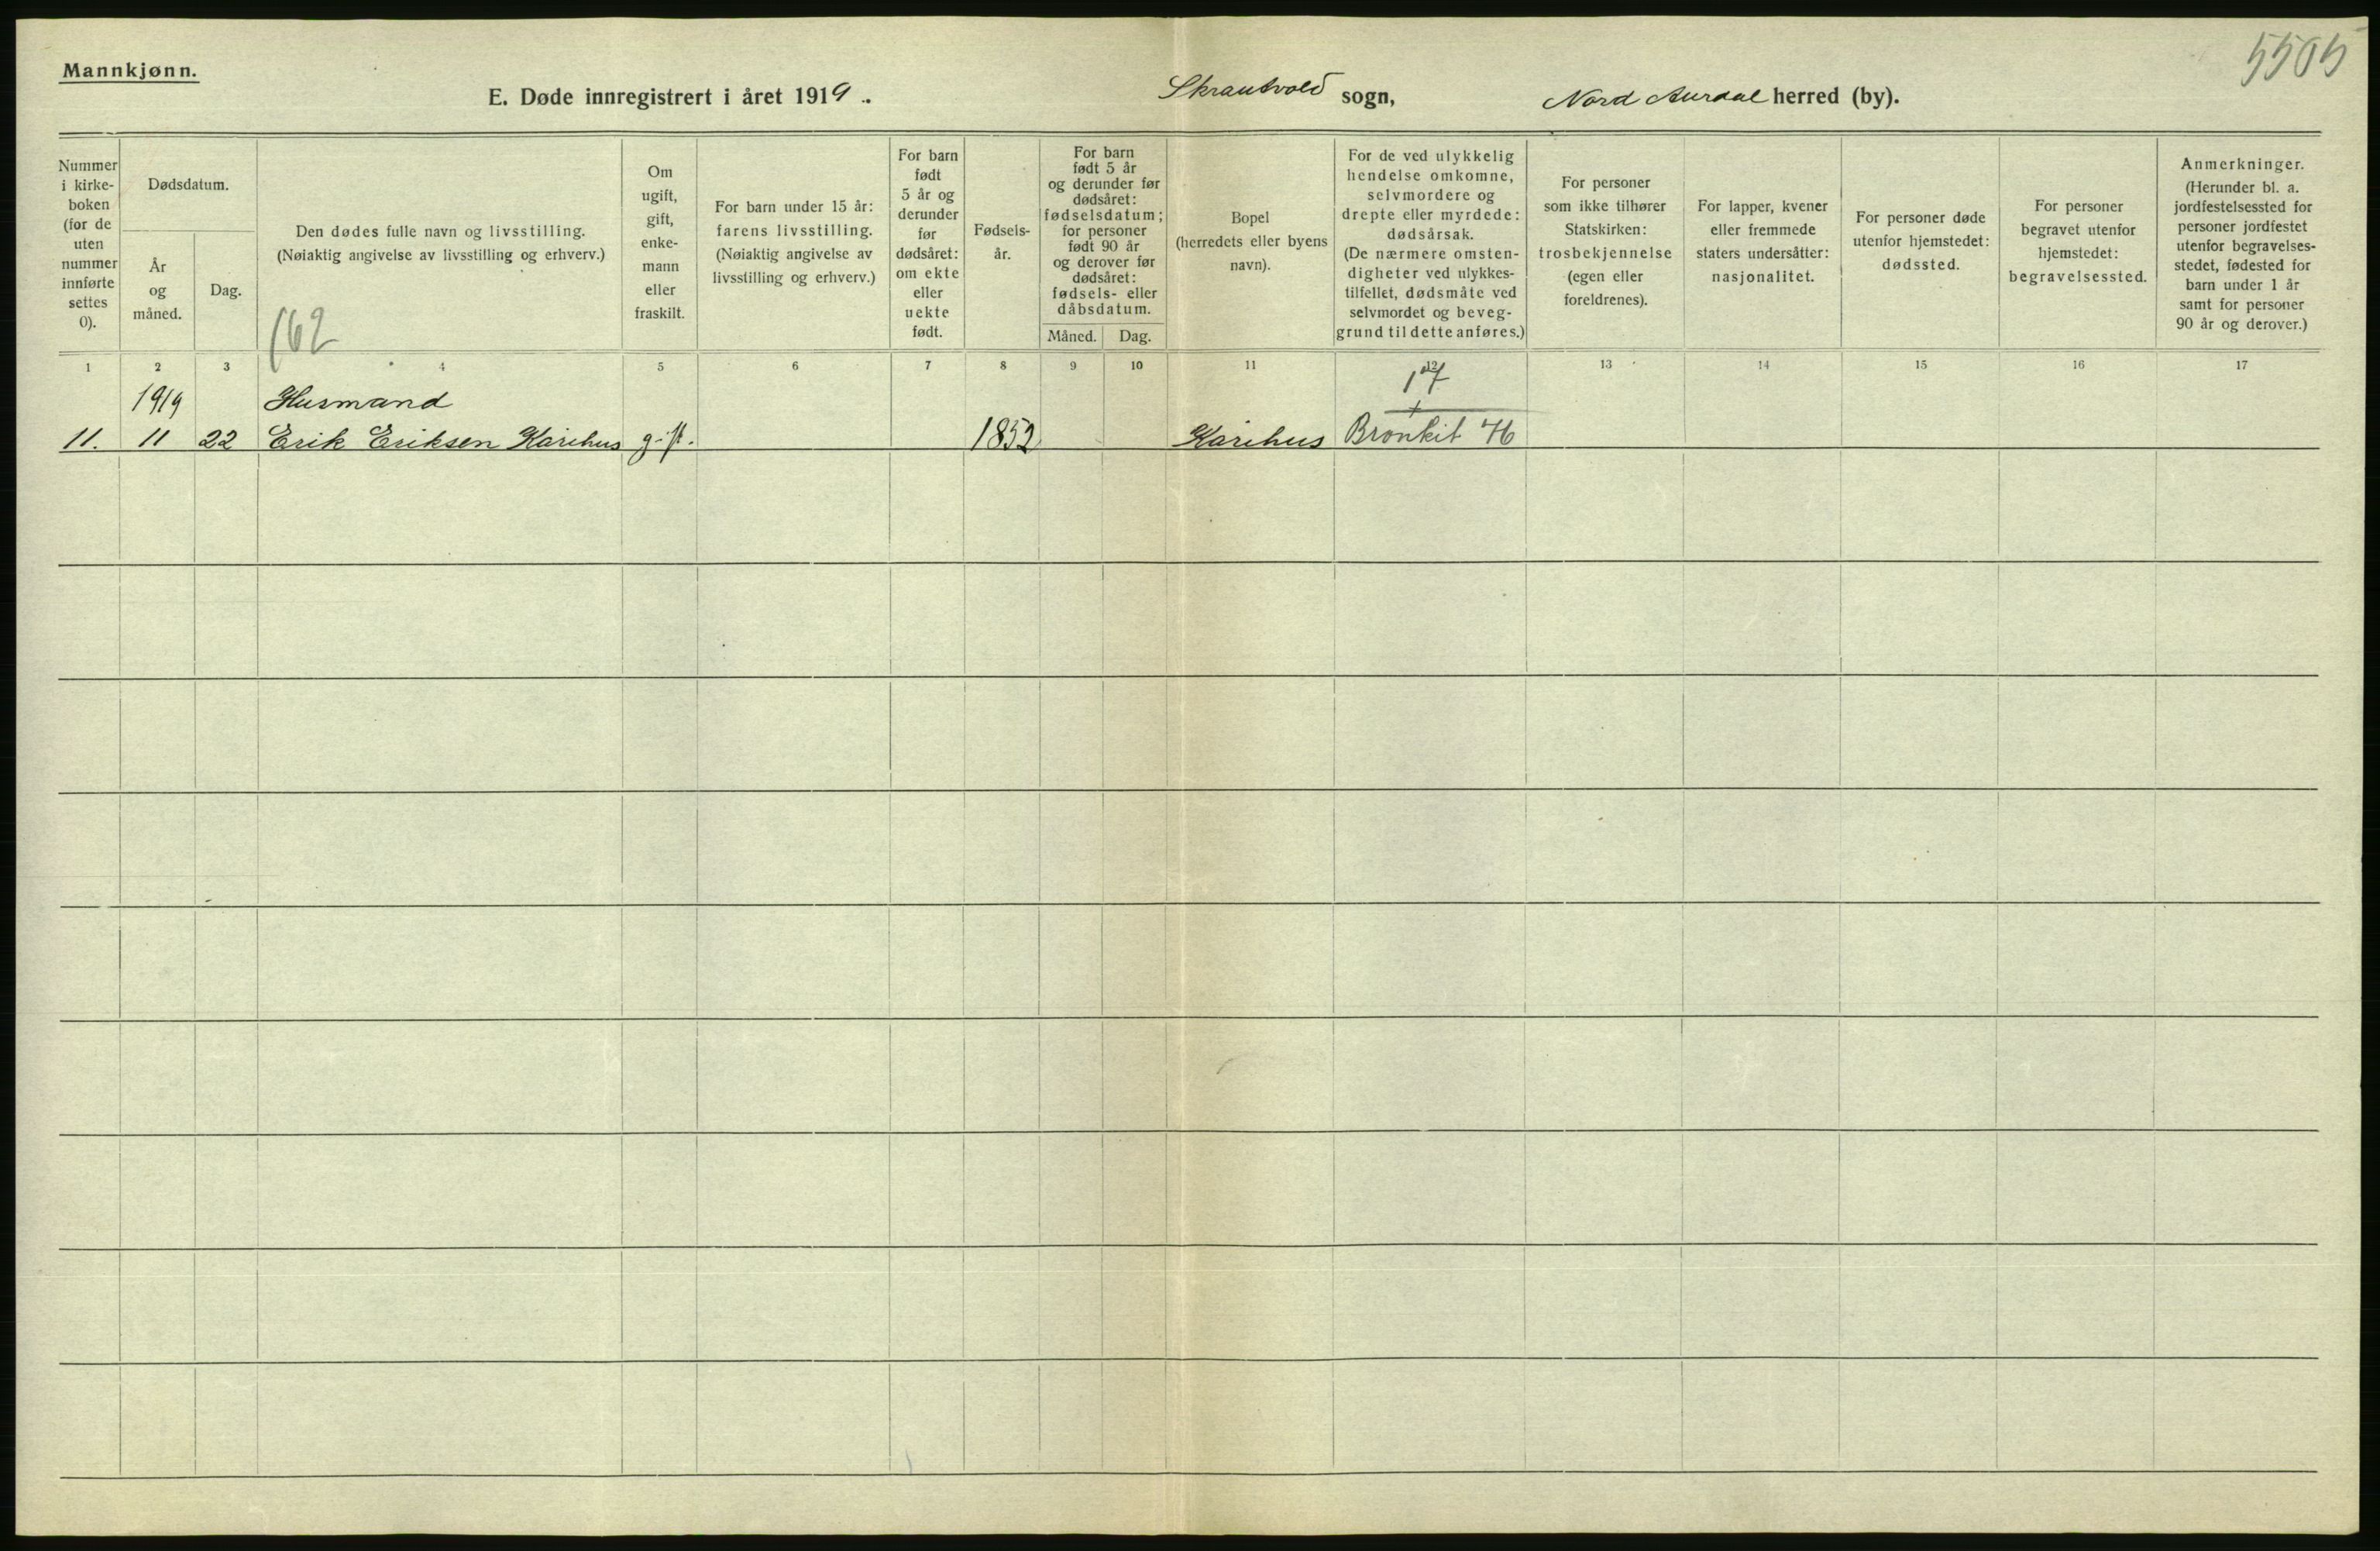 5505
Mannkjønn.
E. Døde innregistrert i året 1919. Skrautvold sogn, Nord Aurdal herred (by).
Nummer
i kirke-
boken
(for de
uten
nummer
innførte
settes
0).
Dødsdatum.
År
og
måned.
Dag.
Den dødes fulle navn og livsstilling.
(Nøiaktig angivelse av livsstilling og erhverv.)
162
Om
ugift,
gift,
enke-
mann
eller
fraskilt.
For barn under 15 år:
farens livsstilling.
(Nøiaktig angivelse av
livsstilling og erhverv.)
For barn
født
5 år og
derunder
før
dødsåret:
om ekte
eller
uekte
født.
Fødsels-
år.
For barn
født 5 år
og derunder før
dødsåret:
fødselsdatum;
for personer
født 90 år
og derover før
dødsåret:
fødsels- eller
dåbsdatum.
Måned. Dag.
Bopel
(herredets eller byens
navn).
For de ved ulykkelig
hendelse omkomne,
selvmordere og
drepte eller myrdede:
dødsårsak.
(De nærmere omsten-
digheter ved ulykkes-
tilfellet, dødsmåte ved
selvmordet og beveg-
grund til dette anføres.)
For personer
som ikke tilhører
Statskirken:
trosbekjennelse
(egen eller
foreldrenes).
For lapper, kvener
eller fremmede
staters undersåtter:
nasjonalitet.
For personer døde
utenfor hjemstedet:
dødssted.
For personer
begravet utenfor
hjemstedet:
begravelsessted.
Anmerkninger.
(Herunder bl. a.
jordfestelsessted for
personer jordfestet
utenfor begravelses-
stedet, fødested for
barn under 1 år
samt for personer
90 år og derover.)
1 2 3 4 5 6 7 8 9 10 11 12 13 14 15 16 17
1919 Husmand 17
11. 11 22 Erik Eriksen Karihus gift. 1852 Karihus Bronkit 76